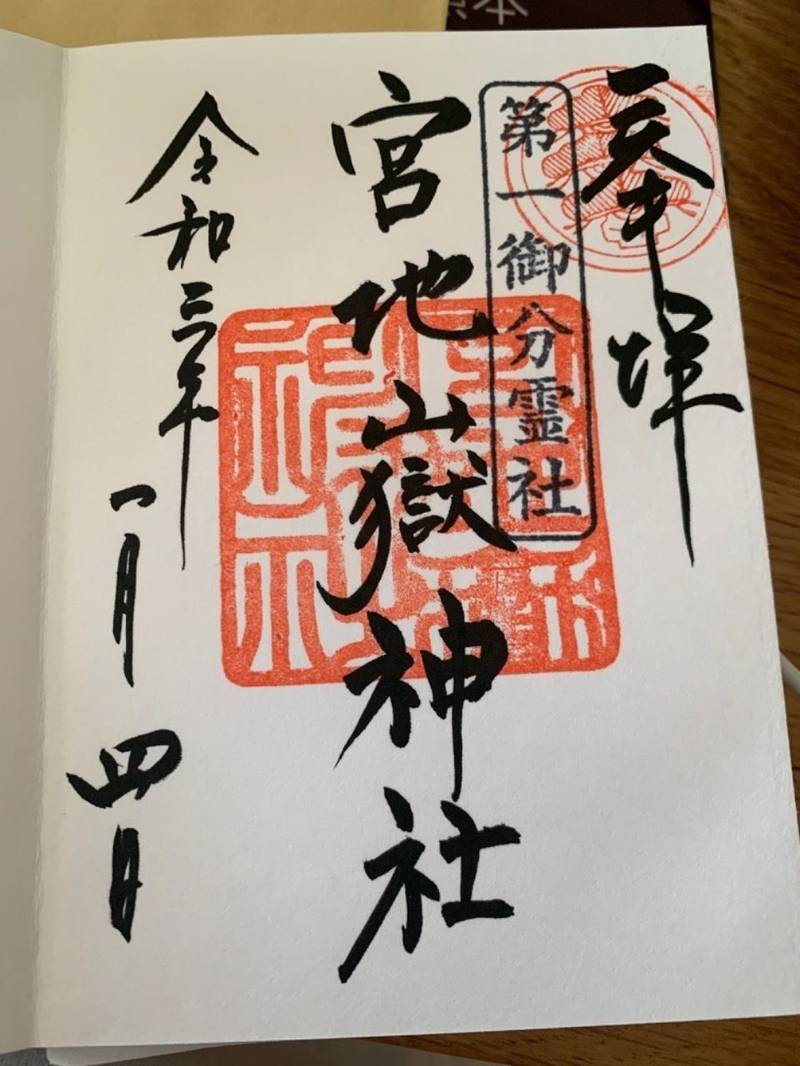 奉拝
第一御分霊社
宮地山嶽神社
令和三年
一月四日
本